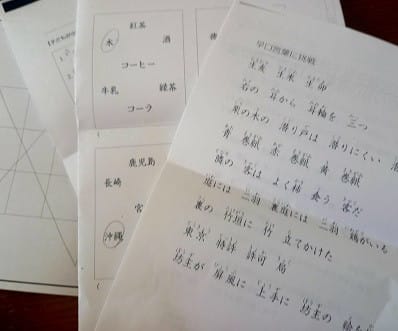 紅茶
水 酒
コーヒー
牛乳 緑茶
コーラ
鹿児島
長崎
宮
沖縄
早口言葉に挑戦
生麦 生米 生
右の 耳から 耳輪を 三つ
栗の木の 潜り戸は 潜りにくい
青 巻紙 赤 巻紙 黄 巻紙
隣の 客は よく 柿 食う 客だ
庭には 二羽 裏庭には 二羽 鶏がいる
裏の 竹垣に 竹 立てかけた
東京 特許 許可 局
坊主が 屏風に 上手に 坊主の 絵を